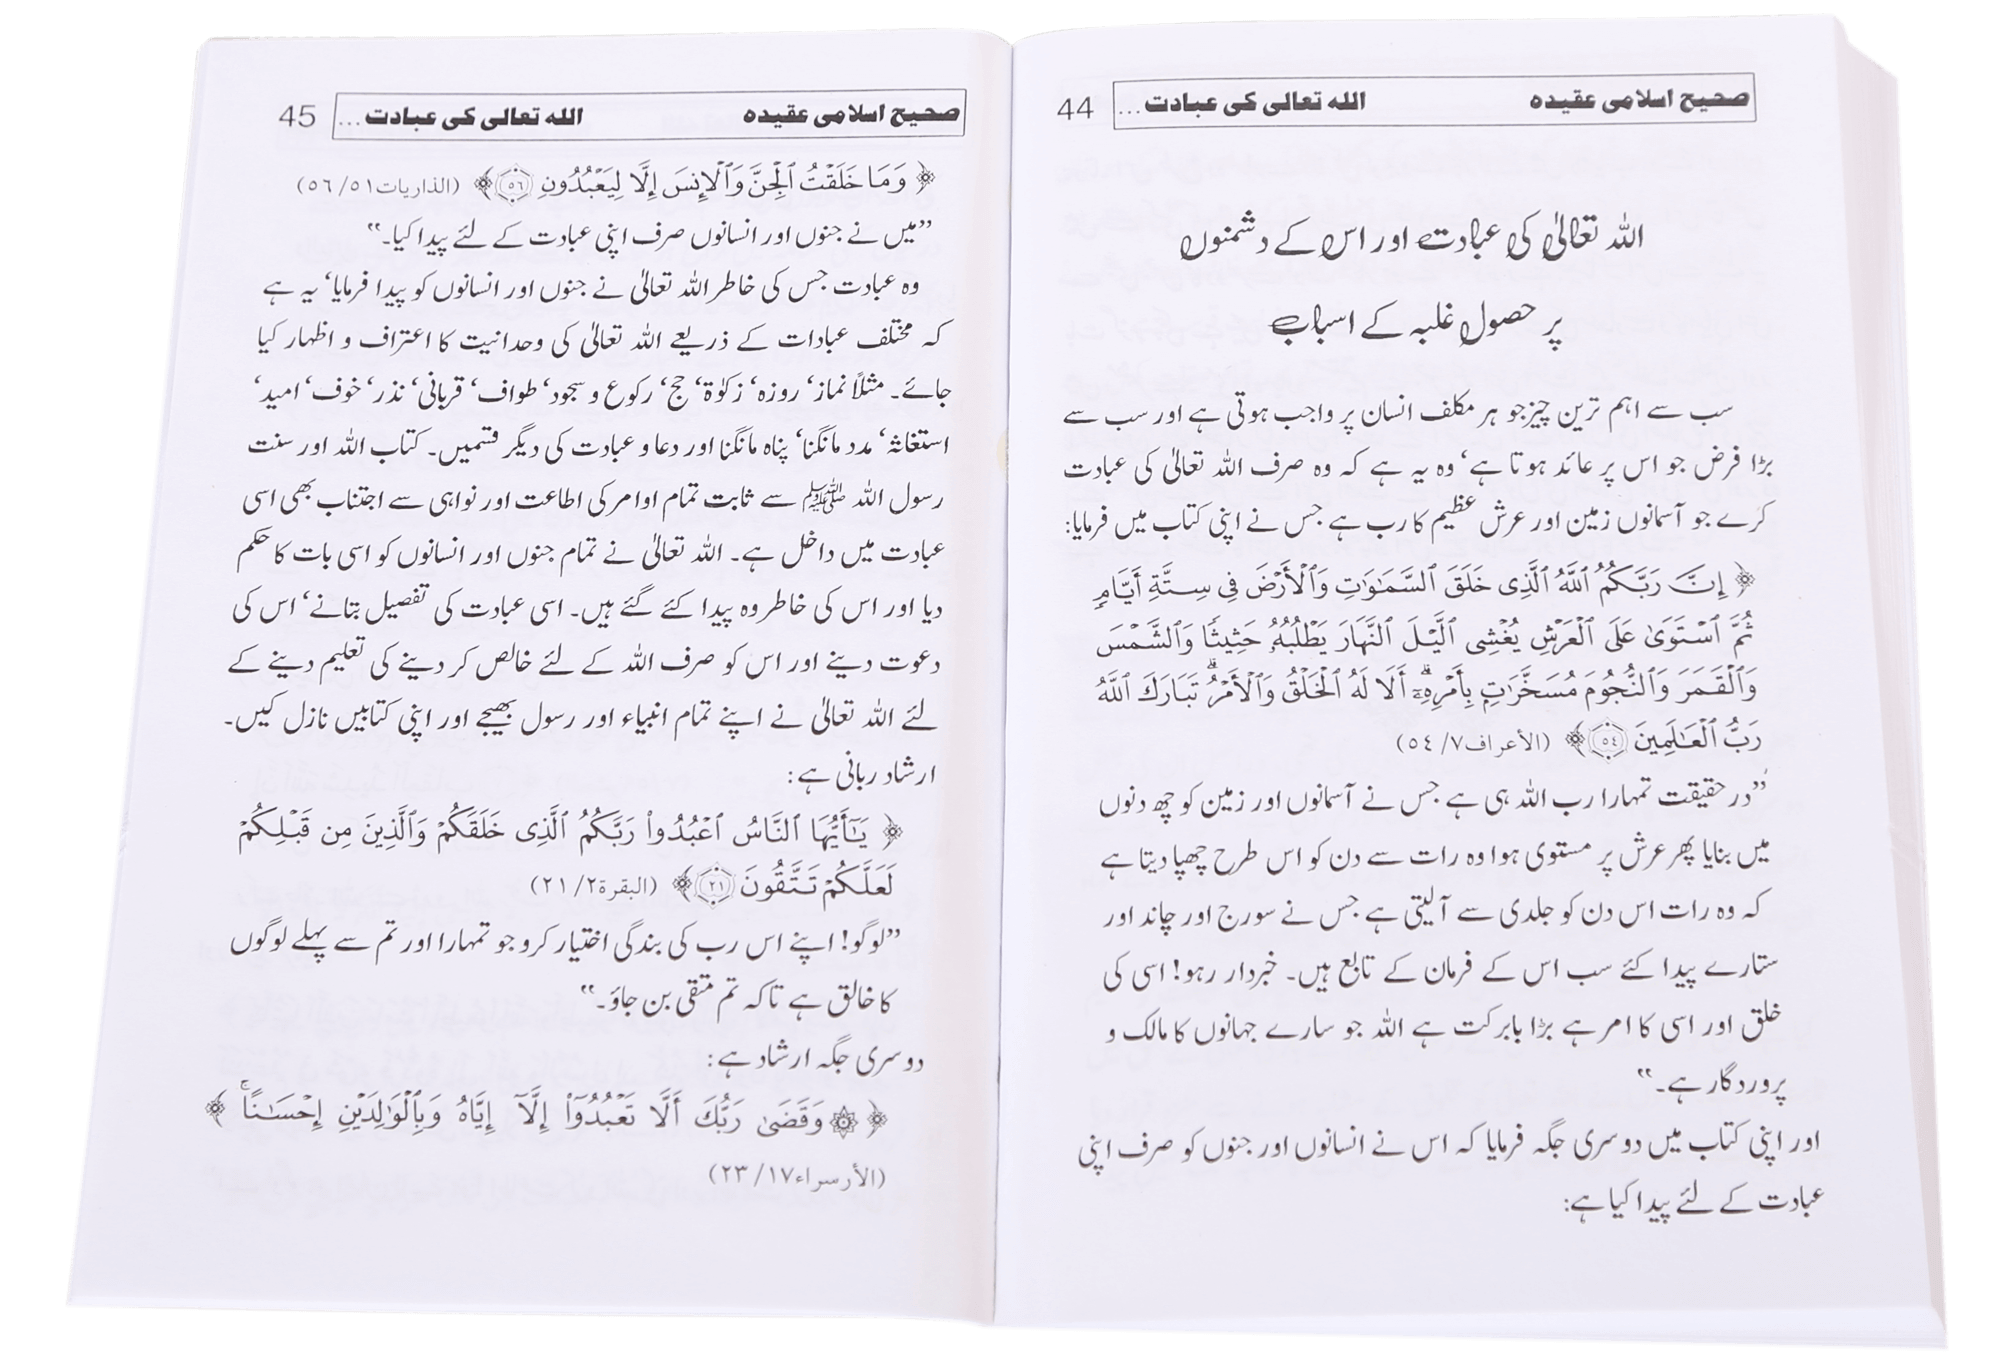 صحیح اسلامی عقیدہ الله تعالی کی عبادت ... 44
اللہ تعالیٰ کی عبادت اور اس کے دشمنوں
پر حصول غلبہ کے اسباب
سب سے اہم ترین چیز جو ہر مکلف انسان پر واجب ہوتی ہے اور سب سے
بڑا فرض جو اس پر عائد ہوتا ہے‘ وہ یہ ہے کہ وہ صرف اللہ تعالیٰ کی عبادت
کرے جو آسمانوں زمین اور عرش عظیم کا رب ہے جس نے اپنی کتاب میں فرمایا:
﴿ إِنَّ رَبَّكُمُ ٱللَّهُ ٱلَّذِى خَلَقَ ٱلسَّمَـٰوَٰتِ وَٱلْأَرْضَ فِى سِتَّةِ أَيَّامٍ
ثُمَّ ٱسْتَوَىٰ عَلَى ٱلْعَرْشِ يُغْشِى ٱلَّيْلَ ٱلنَّهَارَ يَطْلُبُهُۥ حَثِيثًا وَٱلشَّمْسَ
وَٱلْقَمَرَ وَٱلنُّجُومَ مُسَخَّرَٰتٍۭ بِأَمْرِهِۦٓ ۗ أَلَا لَهُ ٱلْخَلْقُ وَٱلْأَمْرُ ۗ تَبَارَكَ ٱللَّهُ
رَبُّ ٱلْعَـٰلَمِينَ ٥٤ ﴾ (الأعراف٧/٥٤)
”در حقیقت تمہارا رب اللہ ہی ہے جس نے آسمانوں اور زمین کو چھ دنوں
میں بنایا پھر عرش پر مستوی ہوا وہ رات سے دن کو اس طرح چھپا دیتا ہے
کہ وہ رات اس دن کو جلدی سے آ لیتی ہے جس نے سورج اور چاند اور
ستارے پیدا کئے سب اس کے فرمان کے تابع ہیں۔ خبردار رہو! اسی کی
خلق اور اسی کا امر ہے بڑا بابرکت ہے اللہ جو سارے جہانوں کا مالک و
پروردگار ہے۔“
اور اپنی کتاب میں دوسری جگہ فرمایا کہ اس نے انسانوں اور جنوں کو صرف اپنی
عبادت کے لئے پیدا کیا ہے:
صحیح اسلامی عقیدہ الله تعالی کی عبادت ... 45
﴿ وَمَا خَلَقْتُ ٱلْجِنَّ وَٱلْإِنسَ إِلَّا لِيَعْبُدُونِ ٥٦ ﴾ (الذاريات٥١/٥٦)
”میں نے جنوں اور انسانوں صرف اپنی عبادت کے لئے پیدا کیا۔“
وہ عبادت جس کی خاطر اللہ تعالیٰ نے جنوں اور انسانوں کو پیدا فرمایا‘ یہ ہے
کہ مختلف عبادات کے ذریعے اللہ تعالیٰ کی وحدانیت کا اعتراف و اظہار کیا
جائے۔ مثلاً نماز‘ روزہ‘ زکوٰۃ‘ حج‘ رکوع و سجود‘ طواف‘ قربانی‘ نذر‘ خوف‘ امید‘
استغاثہ‘ مدد مانگنا‘ پناہ مانگنا اور دعا و عبادت کی دیگر قسمیں۔ کتاب اللہ اور سنت
رسول اللہ ﷺ سے ثابت تمام اوامر کی اطاعت اور نواہی سے اجتناب بھی اسی
عبادت میں داخل ہے۔ اللہ تعالیٰ نے تمام جنوں اور انسانوں کو اسی بات کا حکم
دیا اور اس کی خاطر وہ پیدا کئے گئے ہیں۔ اسی عبادت کی تفصیل بتانے‘ اس کی
دعوت دینے اور اس کو صرف اللہ کے لئے خالص کر دینے کی تعلیم دینے کے
لئے اللہ تعالیٰ نے اپنے تمام انبیاء اور رسول بھیجے اور اپنی کتابیں نازل کیں۔
ارشاد ربانی ہے:
﴿ يَـٰٓأَيُّهَا ٱلنَّاسُ ٱعْبُدُوا۟ رَبَّكُمُ ٱلَّذِى خَلَقَكُمْ وَٱلَّذِينَ مِن قَبْلِكُمْ
لَعَلَّكُمْ تَتَّقُونَ ٢١ ﴾ (البقرة٢/٢١)
”لوگو! اپنے اس رب کی بندگی اختیار کرو جو تمہارا اور تم سے پہلے لوگوں
کا خالق ہے تاکہ تم متقی بن جاؤ۔“
دوسری جگہ ارشاد ہے:
﴿ ۞ وَقَضَىٰ رَبُّكَ أَلَّا تَعْبُدُوٓا۟ إِلَّآ إِيَّاهُ وَبِٱلْوَٰلِدَيْنِ إِحْسَـٰنًا ۚ ﴾
(الأرسراء١٧/٢٣)